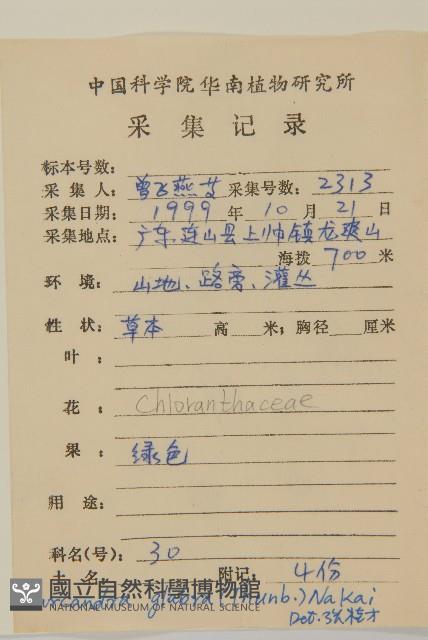 中国科学院华南植物研究所
采集记录
标本号数：
采集人：曾飞燕 采集号数：2313
采集日期：1999年10月21日
采集地点：广东连山县上帅镇龙 山
海拨700米
环境：山地、路旁、灌丛
性状：草本 高 米；胸径 厘米
叶：
花：Chloranthaceae
果：绿色
用途：
科名(号)：30
土名 附记：4份
國立自然科學博物館
NATIONAL MUSEUM OF NATURAL SCIENCE
glabra (Thunb.) Nakai
Det. 张